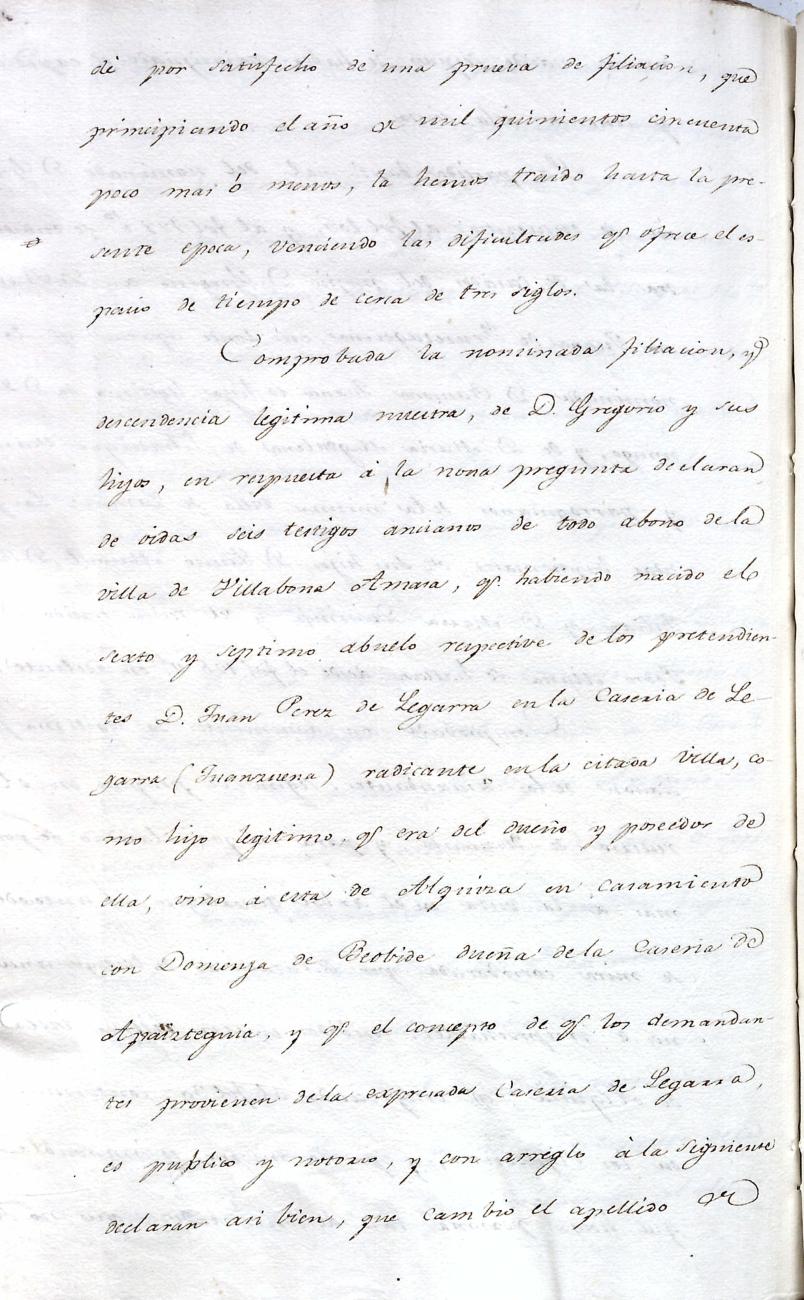 dé por satisfecho de una prueba de filiacion, que
principiando el año de mil quinientos cincuenta
poco mas ó menos, la hemos traido hasta la pre-
sente epoca, venciendo las dificultades qe ofrece el es-
pacio de tiempo de cerca de tres siglos.
Comprobada la nominada filiacion, y
descendencia legitima nuestra, de D. Gregorio y sus
hijos, en respuesta á la nona pregunta declaran
de oidas seis testigos ancianos de todo abono de la
villa de Villabona Amasa, qe habiendo nacido el
sexto y septimo abuelo respective de los pretendien-
tes D. Juan Perez de Legarra en la Caseria de Le-
garra (Juanzuena) radicante en la citada Villa, co-
mo hijo legitimo, qe era del dueño y poseedor de
ella, vino á esta de Alquiza en casamiento
con Domenja de Beobide dueña de la Caseria de
Apaizteguia, y qe el concepto de qe los demandan-
tes provienen de la expresada Caseria de Legarra,
es publico y notorio, y con arreglo à la siguiente
declaran asi bien, que cambio el apellido de